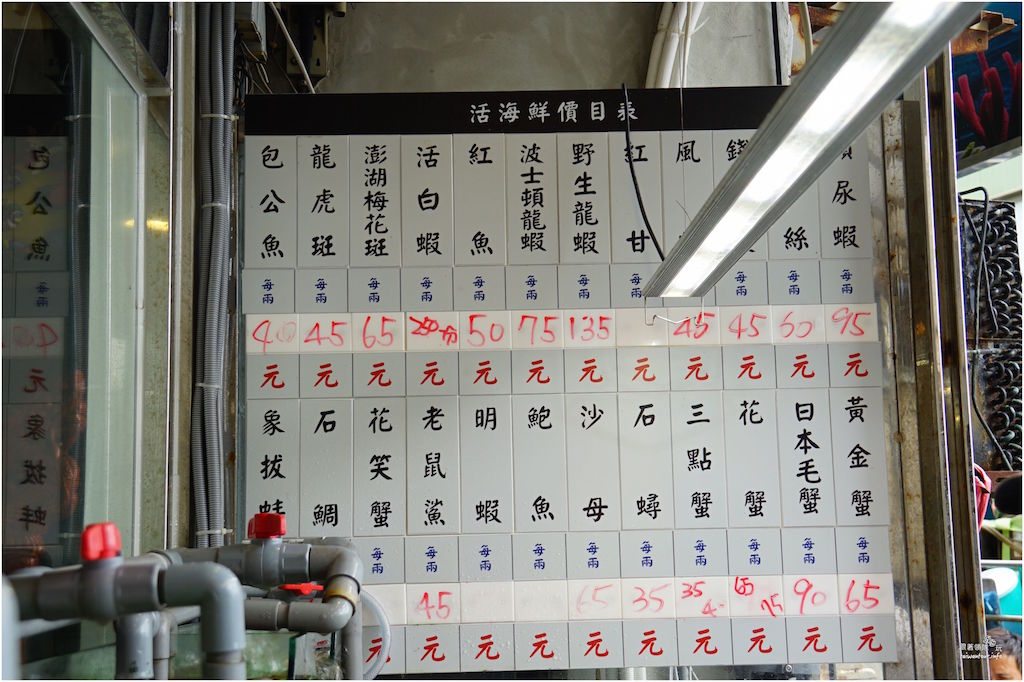 活海鮮價目表
包公魚 龍虎斑 澎湖梅花斑 活白蝦 紅魚 波士頓龍蝦 野生龍蝦 紅甘 風 錢 絲 尿蝦
每兩 每兩 每兩 每兩 每兩 每兩 每兩 每兩 每兩 每兩 每兩
40 45 65 50 75 135 45 45 60 95
元 元 元 元 元 元 元 元 元 元 元 元
象拔蚌 石鯛 花笑蟹 老鼠鯊 明蝦 鮑魚 沙母 石蟳 三點蟹 花蟹 日本毛蟹 黃金蟹
每兩 每兩 每兩 每兩 每兩 每兩 每兩 每兩 每兩 每兩
45 65 35 35 90 65
元 元 元 元 元 元 元 元 元 元
包公魚
每兩
元
象拔蚌